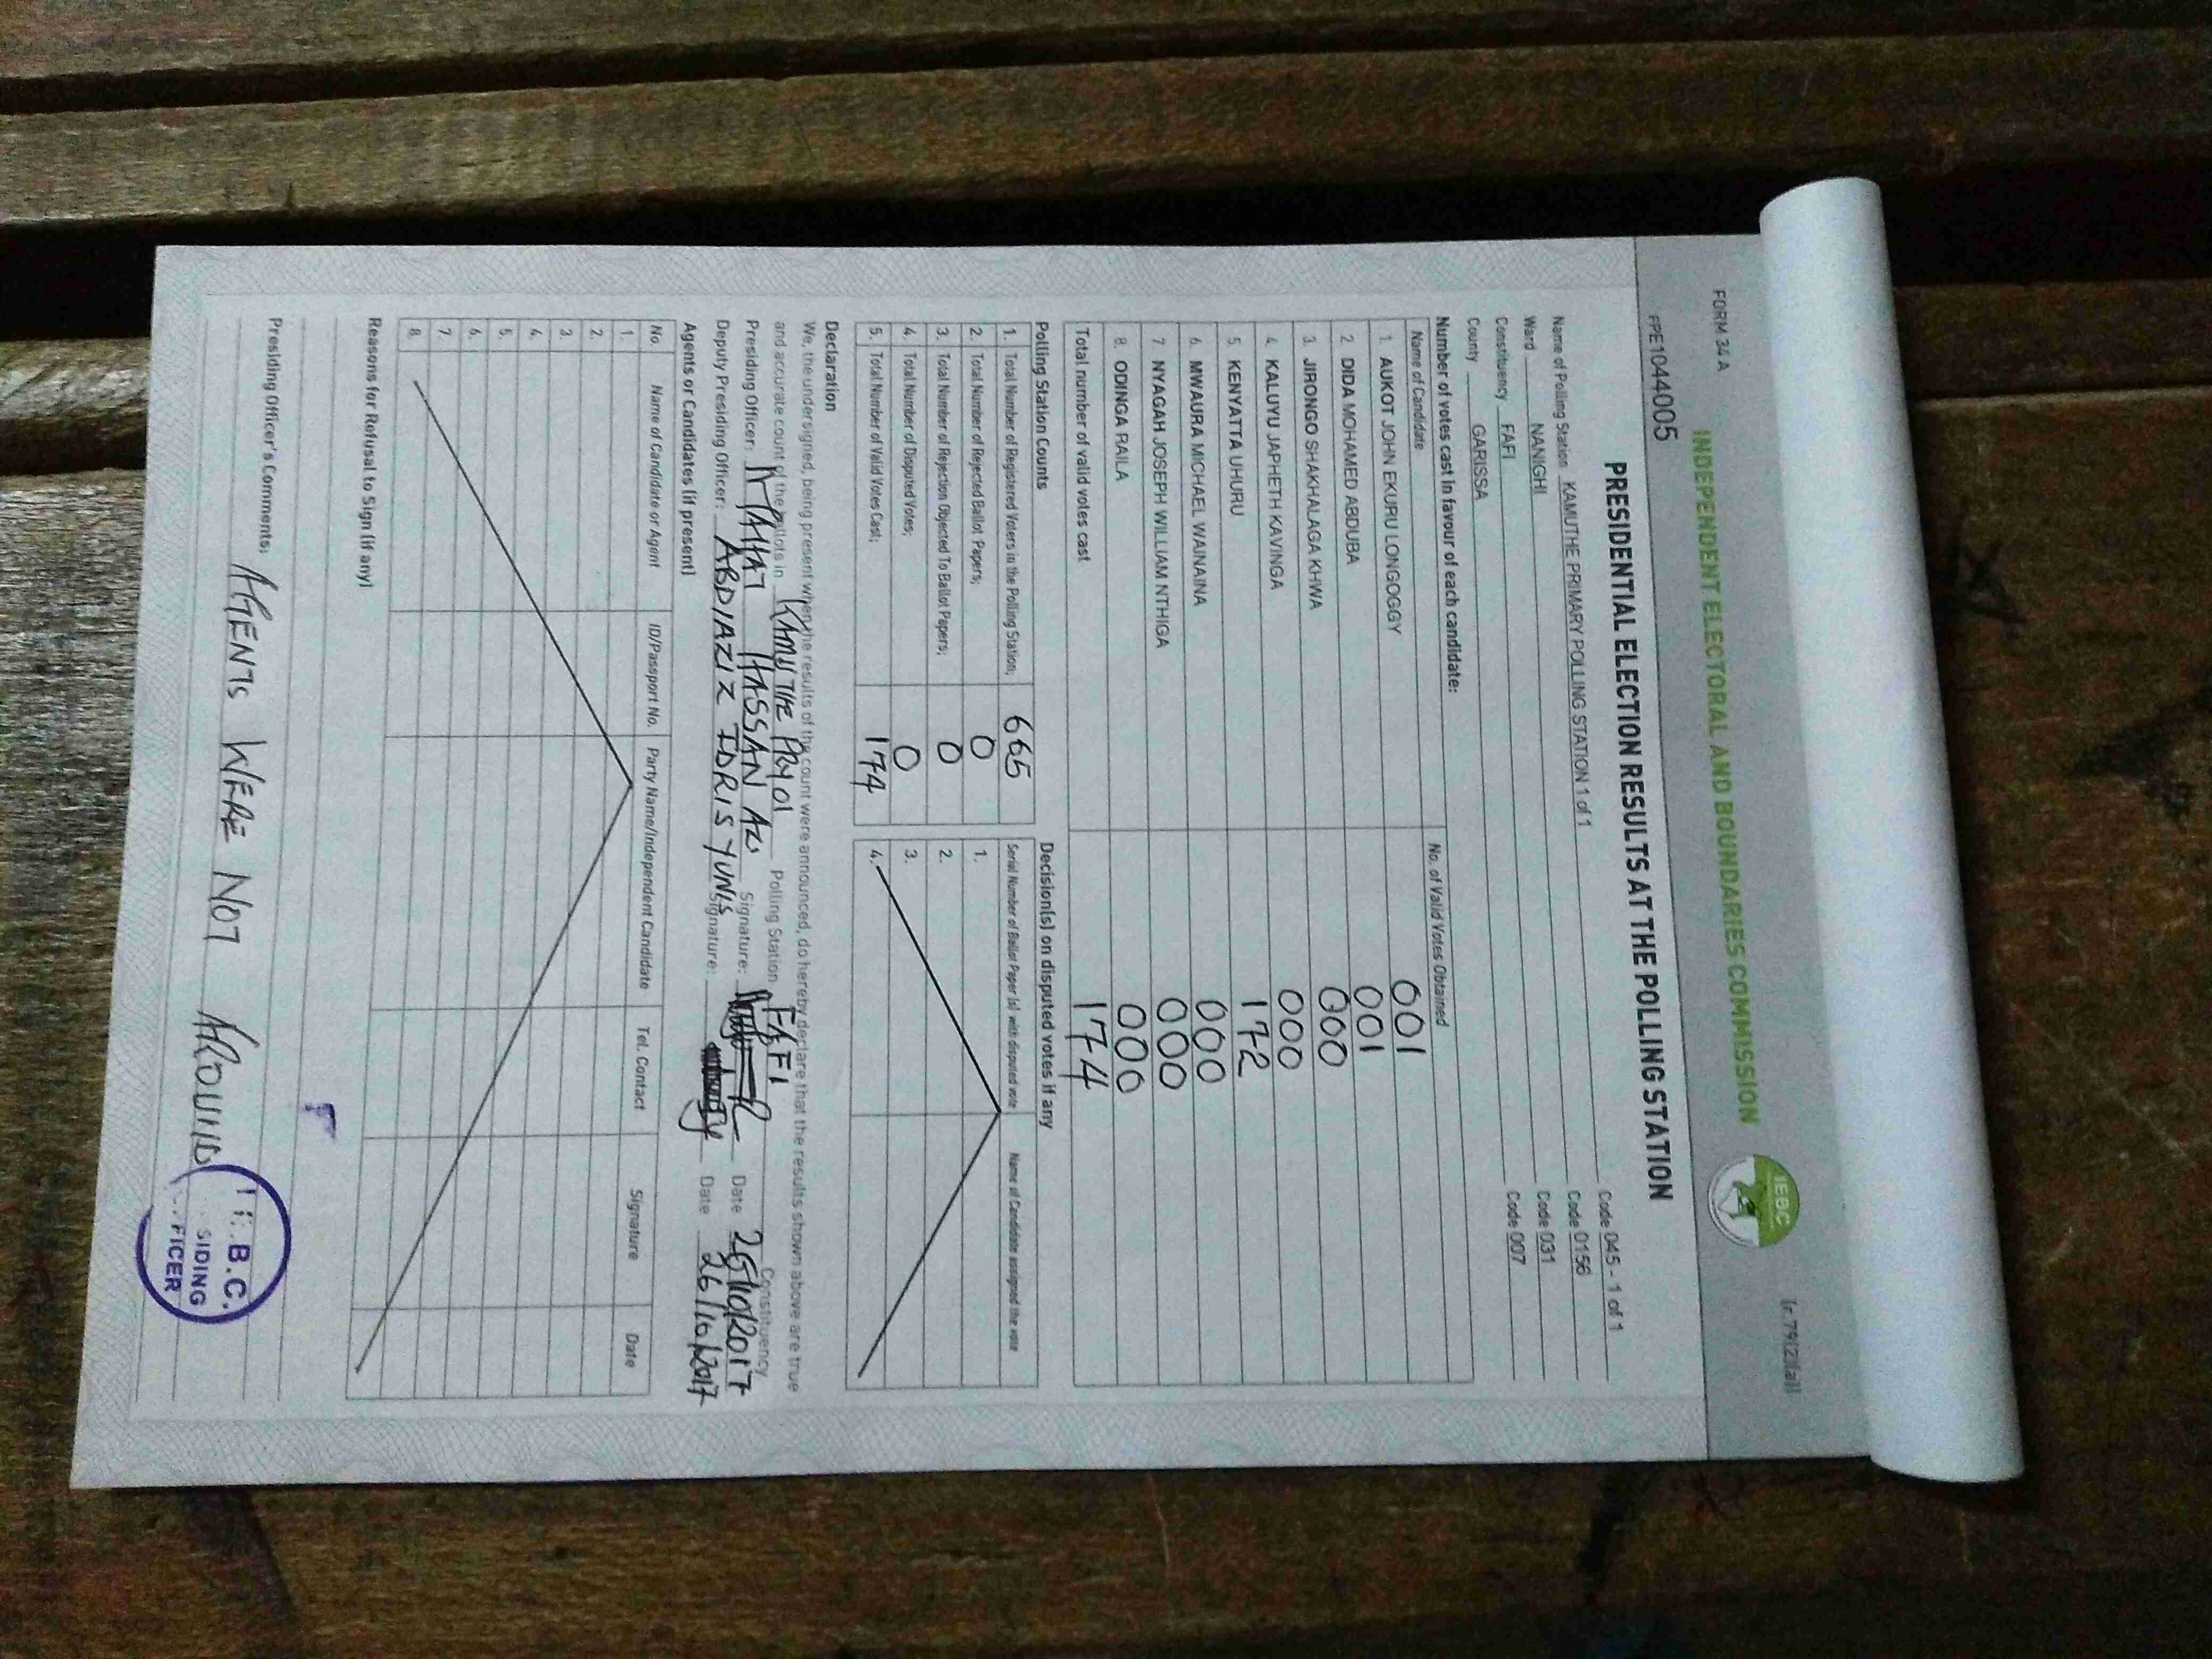 FORM 34 A
[r.79(2)(a)]
INDEPENDENT ELECTORAL AND BOUNDARIES COMMISSION
IEBC
FPE1044005
PRESIDENTIAL ELECTION RESULTS AT THE POLLING STATION
Name of Polling Station KAMUTHE PRIMARY POLLING STATION 1 of 1 Code 045 - 1 of 1
Ward NANIGHI Code 0156
Constituency FAFI Code 031
County GARISSA Code 007
Number of votes cast in favour of each candidate:
Name of Candidate No. of Valid Votes Obtained
1. AUKOT JOHN EKURU LONGOGGY 001
2 DIDA MOHAMED ABDUBA 001
3. JIRONGO SHAKHALAGA KHWA 000
4. KALUYU JAPHETH KAVINGA 000
5. KENYATTA UHURU 172
6 MWAURA MICHAEL WAINAINA 000
7. NYAGAH JOSEPH WILLIAM NTHIGA 000
8. ODINGA RAILA 000
Total number of valid votes cast 174
Polling Station Counts
1. Total Number of Registered Voters in the Polling Station; 665
2. Total Number of Rejected Ballot Papers; 0
3. Total Number of Rejection Objected To Ballot Papers; 0
4. Total Number of Disputed Votes; 0
5. Total Number of Valid Votes Cast; 174
Decision(s) on disputed votes if any
Serial Number of Ballot Paper (s) with disputed vote Name of Candidate assigned the vote
1.
2.
3.
4.
Declaration
We, the undersigned, being present when the results of the count were announced, do hereby declare that the results shown above are true
and accurate count of the ballots in KAMUTHE PRY 01 Polling Station FAFI Constituency
Presiding Officer: HASSAN Signature: Date 26/10/2017
Deputy Presiding Officer: ABDIAZIZ IDRIS YUNIS Signature: Date 26/10/2017
Agents or Candidates (if present)
No. Name of Candidate or Agent ID/Passport No. Party Name/Independent Candidate Tel. Contact Signature Date
1.
2.
3.
4.
5.
6.
7.
8.
Reasons for Refusal to Sign (if any)
Presiding Officer's Comments;
AGENTS WERE NOT AROUND
B.C.
SIDING
FICER